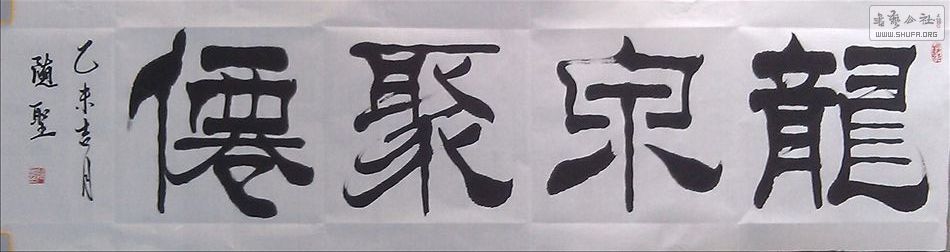 龍泉聚僊
乙未吉月
隨聖
书艺公社
WWW.SHUFA.ORG